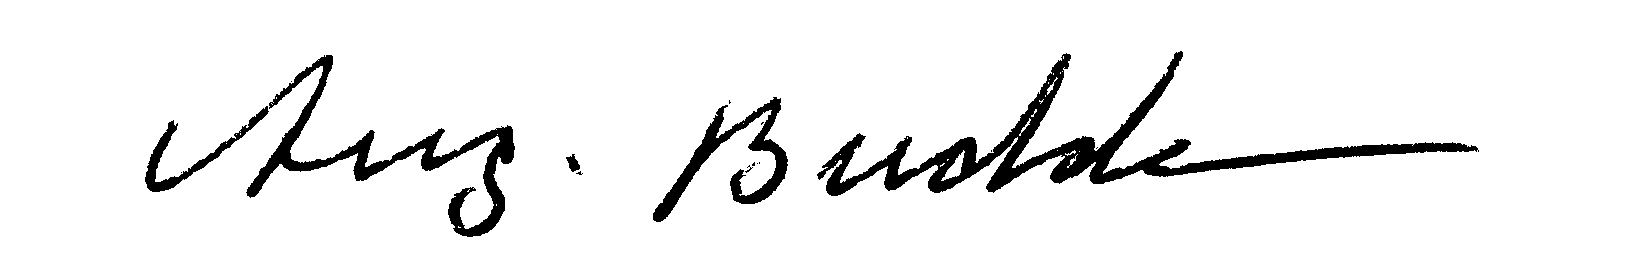 Aug. Budde